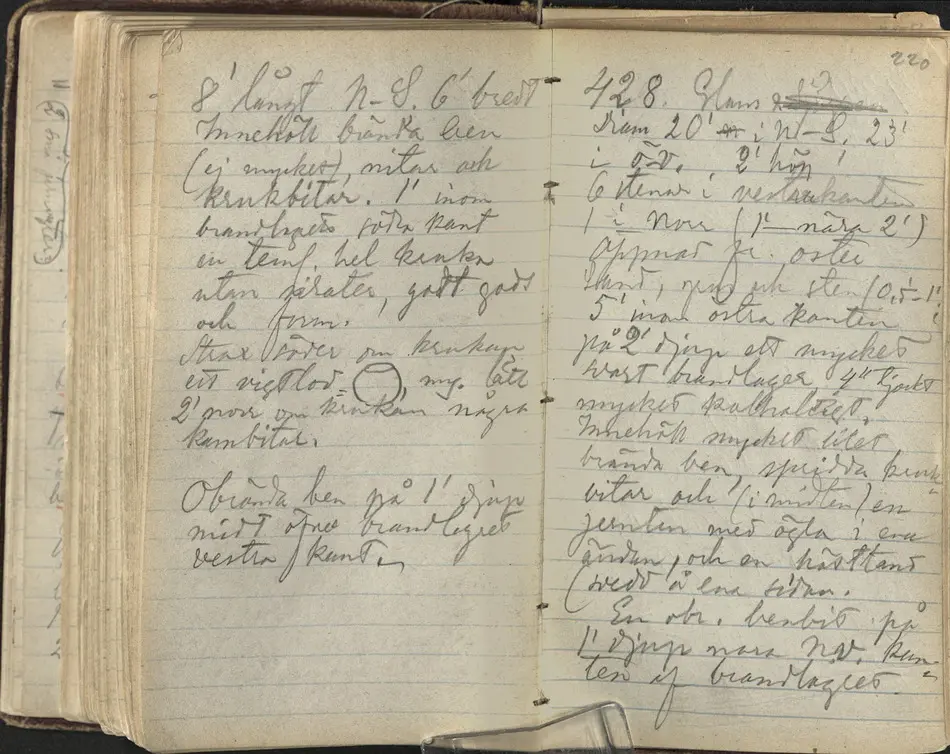 8' långt N-S. 6' bredt
Innehöll brända ben
(ej mycket), nitar och
krukbitar. 1' inom
brandlagrets södra kant
en teml. hel kruka
utan sirater, godt gods
och form.
Strax söder om krukan
ett vigtlod, my. lätt
2' norr om krukan några
kambitar.
Obrända ben på 1' djup
midt öfver brandlagret
vestra kant.
220
428. Glaus
Diam 20' i N-S. 23'
i ö-v. 2' hög
6 stenar i vestra kanten
1 i norr (1 nära 2')
Öppnad fr. öster
Sand, och sten (0,5-1'
5' inom östra kanten
på 2' djup ett mycket
svart brandlager, 4" tjockt
mycket kolhaltigt.
Innehöll mycket litet
brända ben, spridda kruk-
bitar och (i midten) en
jernten med ögla i ena
ändan, och en hästtand
(svedd å ena sidan.
En obr. benbit på
1' djup nära N.V. kan-
ten af brandlagret.